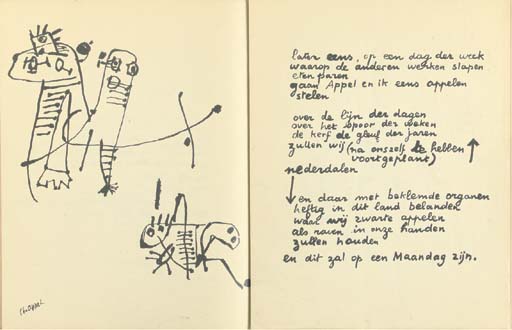 later eens, op een dag der week
waarop de anderen werken slapen
eten paren
gaan Appel en ik eens appelen
stelen
over de lijn der dagen
over het spoor der weken
de kerf de gleuf der jaren
zullen wij (na onszelf te hebben
voortgeplant)
nederdalen
en daar met beklemde organen
heftig in dit land belanden
waar wij zwarte appelen
als raven in onze handen
zullen houden
en dit zal op een Maandag zijn.